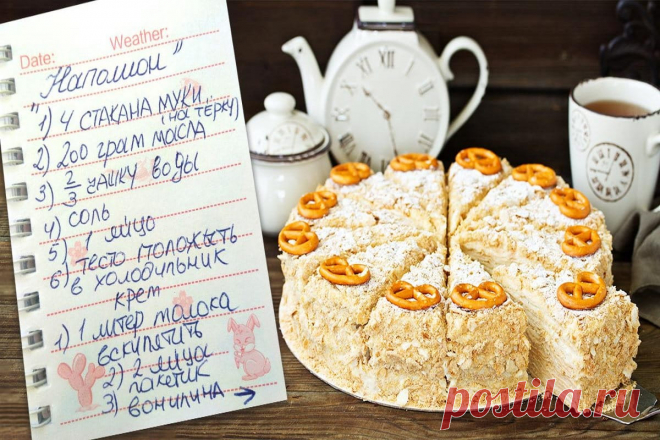 Date:
Weather:
"Наполион"
1) 4 СТАКАНА МУКИ
(на ТЕРКУ)
2) 200 грам МАСЛА
3) 2/3 чашку воды
4) СОЛЬ
5) 1 яйцо
6) ТЕСТО ПОЛОЖЫТЬ
в холодильник
крем
1) 1 литер молока
вскипятить
2) 2 яйца
3) пакетик
вонилина →
postila.ru